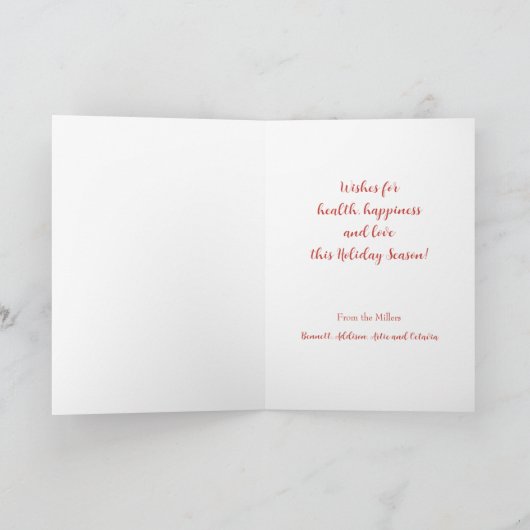 Wishes for
health, happiness
and love
this Holiday Season!
From the Millers
Bennett, Addison, Artie and Octavia